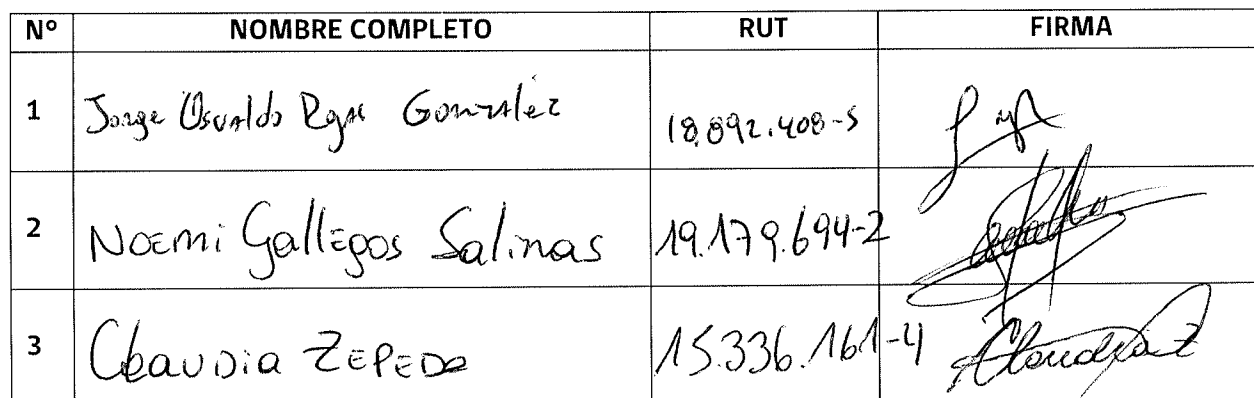 Nº NOMBRE COMPLETO RUT FIRMA
1 Jorge Osvaldo Rojas González 18.892.408-5
2 Noemi Gallegos Salinas 19.179.694-2
3 Claudia Zepeda 15.336.161-4 Claudia Z